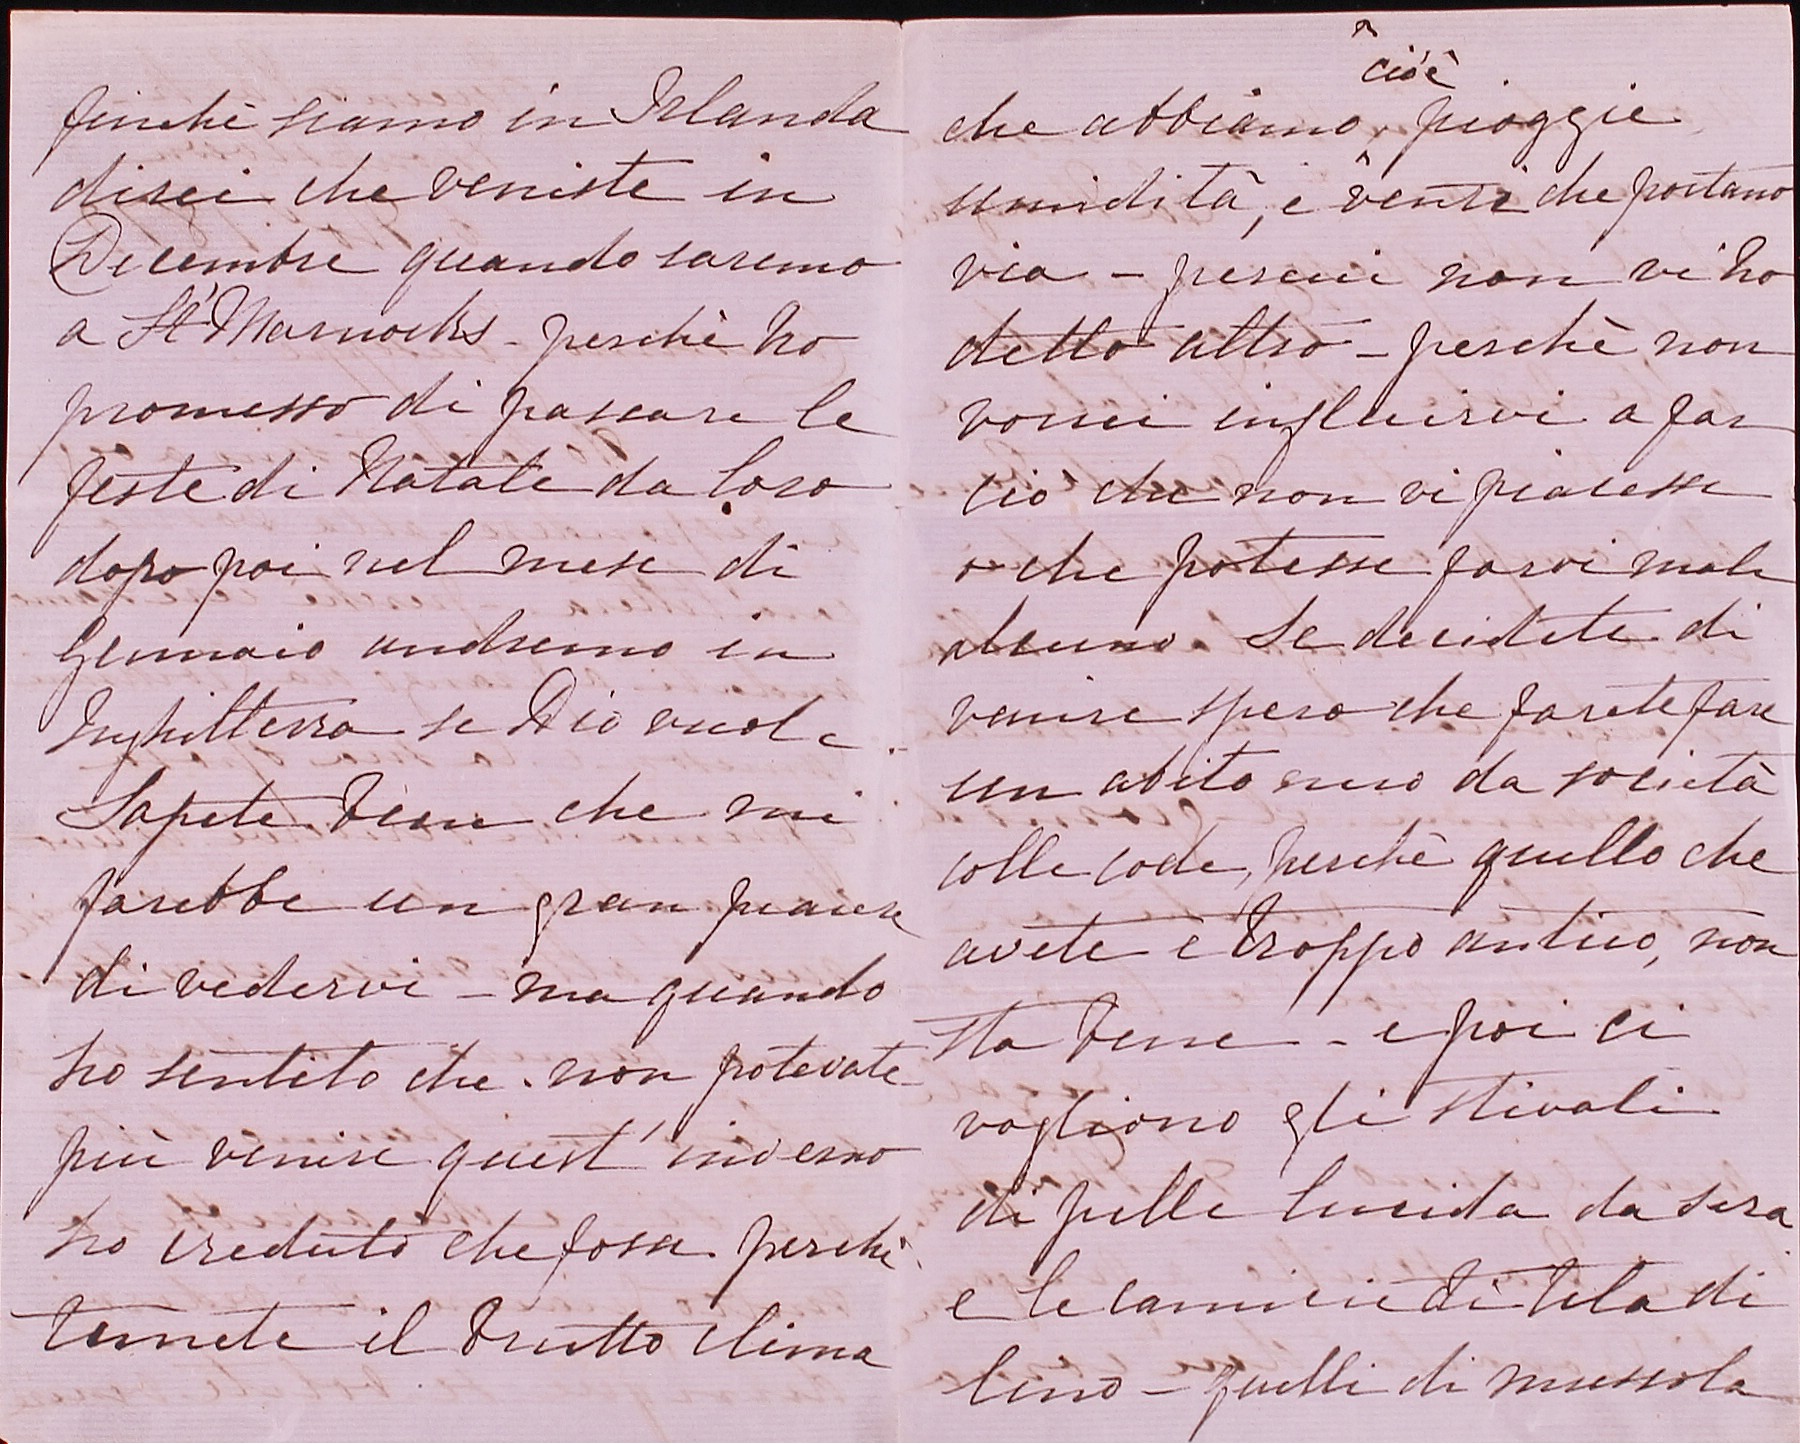 finchè siamo in Irlanda
direi che veniste in
Decembre quando saremo
a St Marnocks - perchè ho
promesso di passare le
feste di Natale da loro
dopo poi nel mese di
Gennaio andremo in
Inghilterra se Dio vuole.
Sapete bene che mi
farebbe un gran piacere
di vedervi - ma quando
ho sentito che non potevate
più venire quest' inverno
ho creduto che fosse perchè
temete il brutto clima
che abbiamo, cioè pioggie
umidità, e venti che portano
via - percui non vi ho
detto altro - perchè non
vorrei influirvi a far
ciò che non vi piacesse
o che potesse farvi male
alcuno. Se decidete di
venire spero che farete fare
un abito nero da società
colle code, perchè quello che
avete è troppo antico, non
sta bene - e poi ci
vogliono gli stivali
di pelle lucida da sera
e le camicie di tela di
lino - quelli di mussola